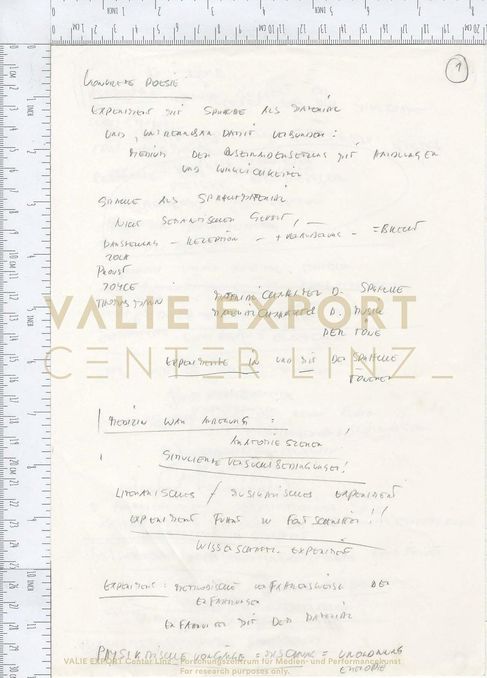 1
KONKRETE POESIE
EXPERIMENT MIT SPRACHE ALS MATERIAL
UND, UNTRENNBAR DAMIT VERBUNDEN:
MEDIUM DER AUSEINANDERSETZUNG MIT
UND WIRKLICHKEITEN
SPRACHE ALS SPRACHMATERIAL
NICHT SEMANTISCHER
DARSTELLUNG – REZEPTION – + – = BRECHT
ZOLA
PROUST
JOYCE
THOMAS MANN MATERIALCHARAKTER D. SPRACHE
MATERIALCHARAKTER D. MUSIK
DER TÖNE
EXPERIMENTE IN UND MIT DER SPRACHE
FORMEN
MEDIZIN WAR :
ANATOMIE SZENEN!
SIMULIERTE VERSUCHSBEDINGUNGEN!
LITERARISCHES / MUSIKALISCHES EXPERIMENT
EXPERIMENT FÜHRT ZU FORTSCHRITT!!
WISSENSCHAFTL. EXPERIMENT
EXPERIMENT: METHODISCHE VERFAHRENSWEISE DER
ERFAHRUNGEN
ERFAHRUNG MIT DEM MATERIAL
PHYSIKALISCHE VORGÄNGE = = UNORDNUNG
ENTROPIE
VALIE EXPORT
CENTER LINZ_
VALIE EXPORT Center Linz_ Forschungszentrum für Medien- und Performancekunst
For research purposes only.